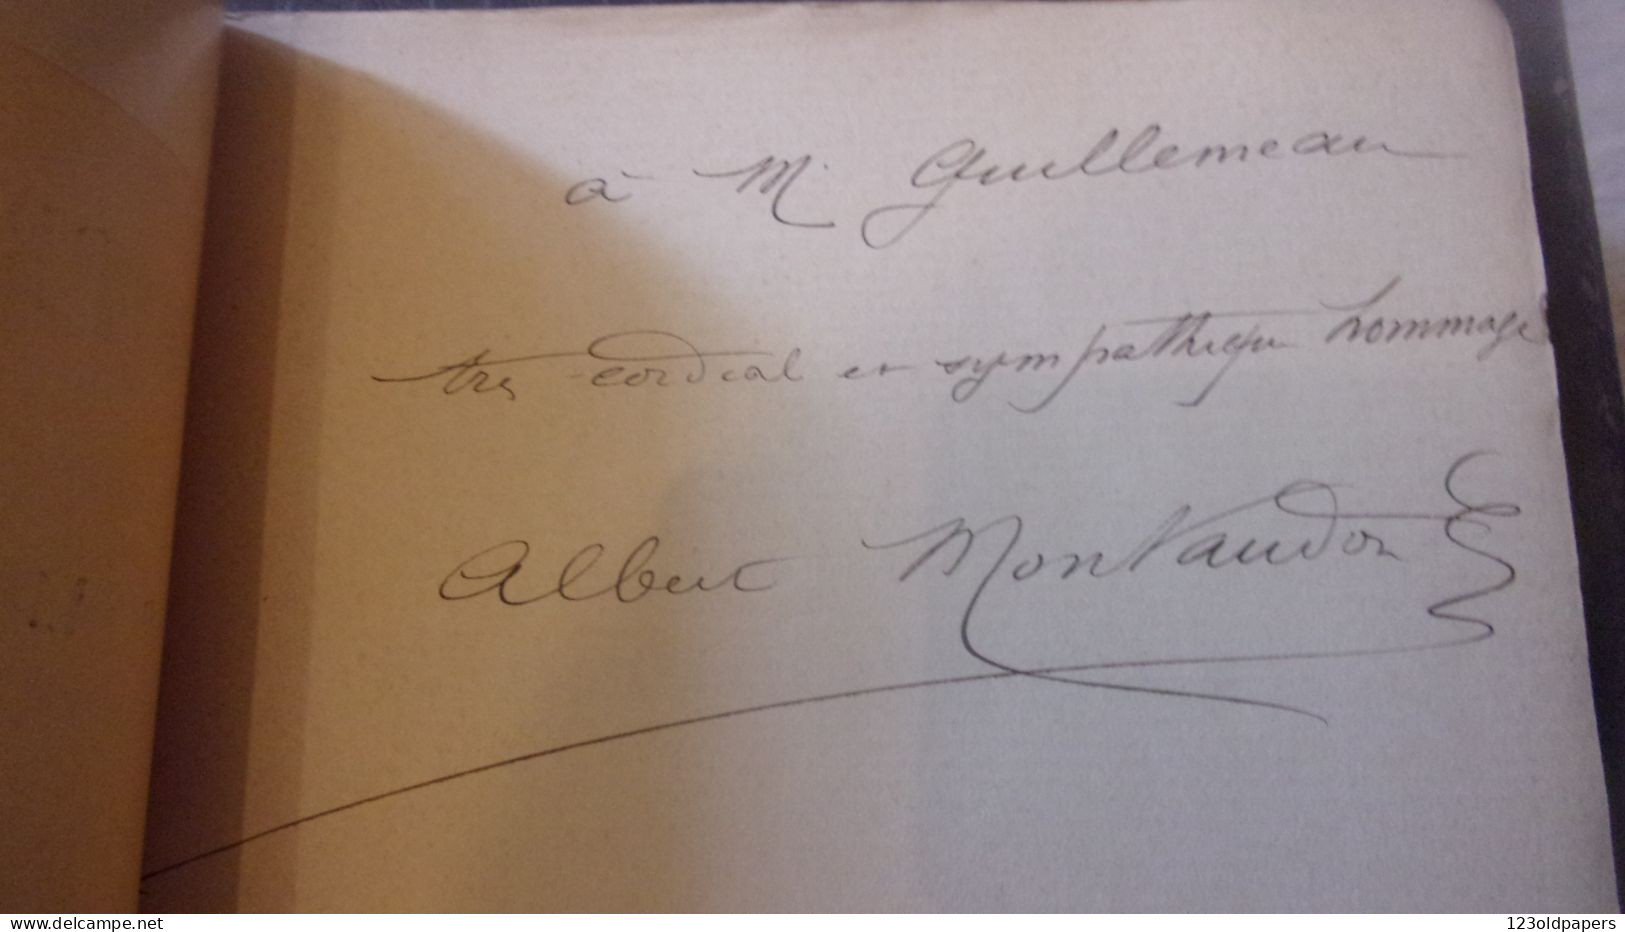 à M. Guillemeau
très cordial et sympathique hommage
Albert Montaudon
www.delcampe.net
123oldpapers